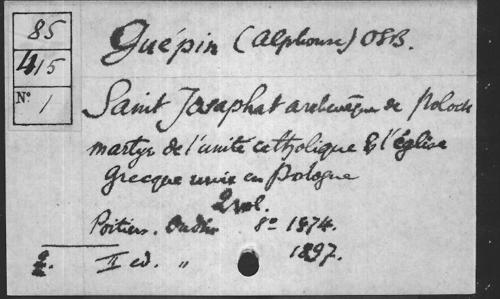 85
415
N° 1
Guépin (Alphonse) OSB.
Saint Josaphat archevêque de Polock
martyr de l'unité catholique & l'église
grecque unie en Pologne
2 vol.
Poitiers. Oudin 8° 1874.
II ed. " 1897.